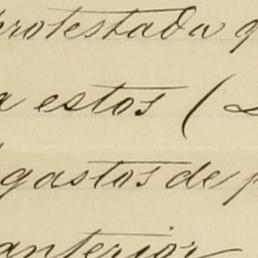 protestada
a estos (
gastos de
anterior